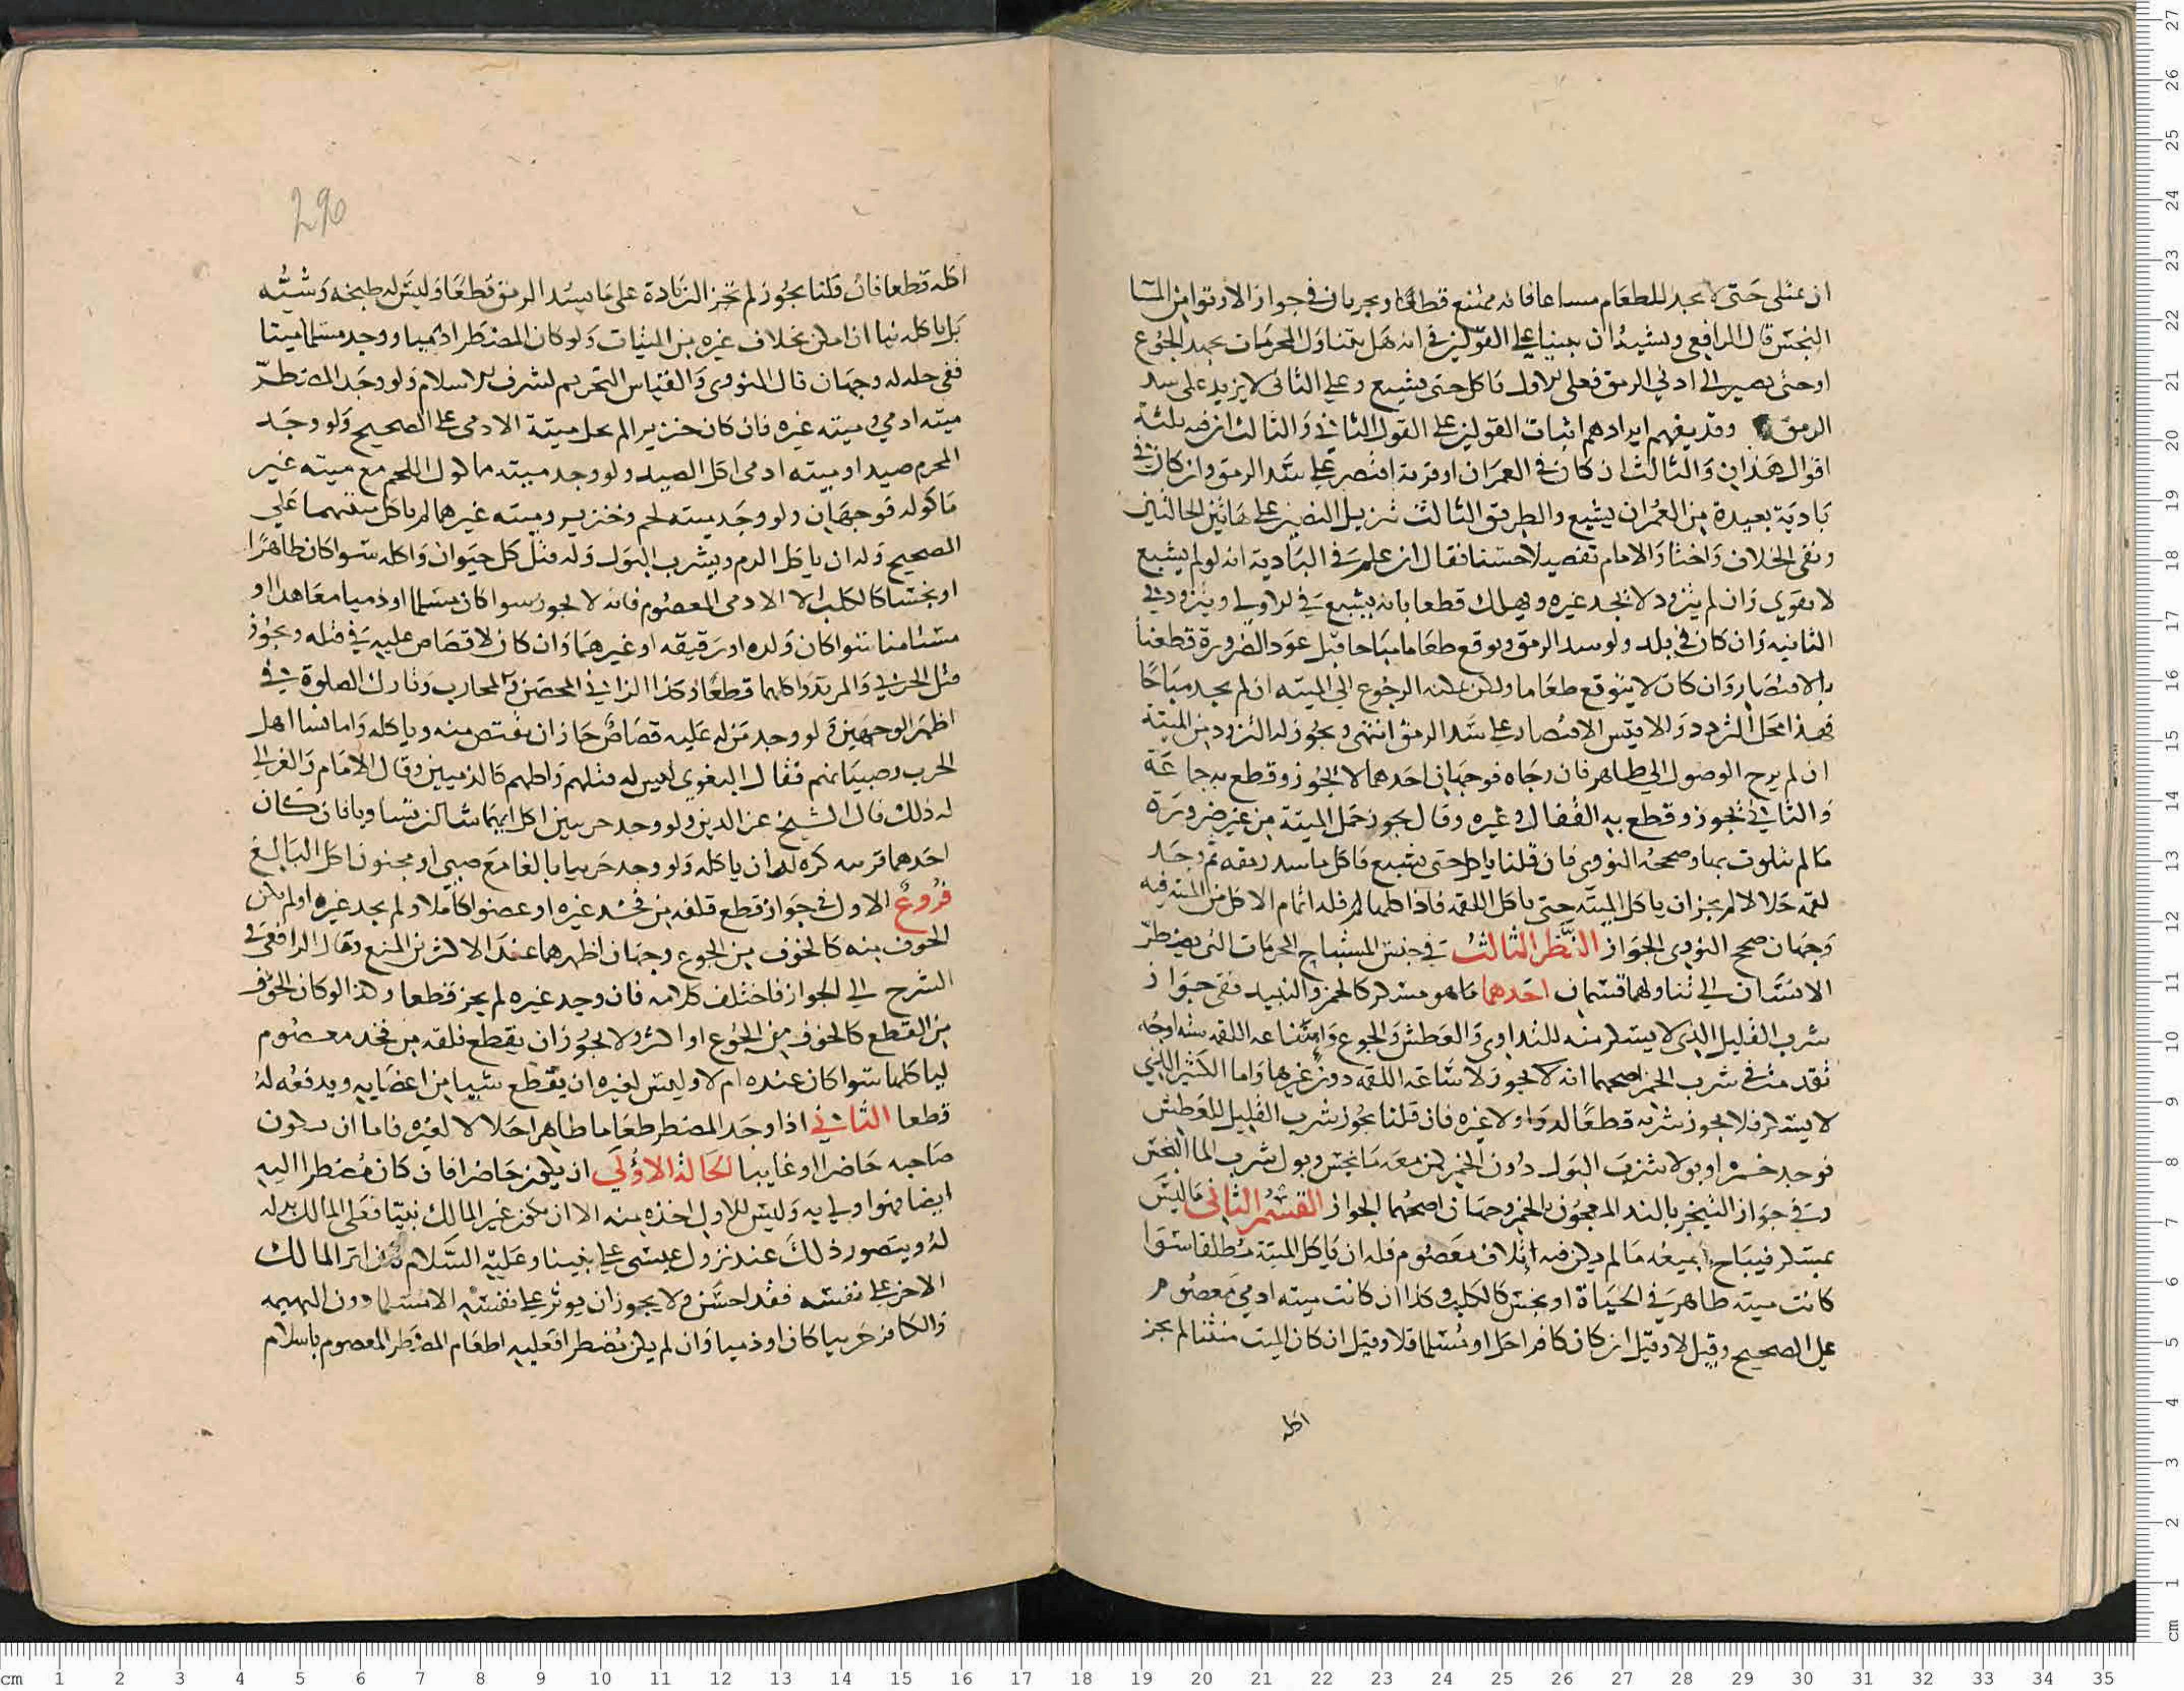 ان يمتلى حتى لا يجد للطعام مساعا فانه ممتنع قطعا ويجريان فى جواز الارتوا من الما
النجس قال الرافعى ويشبه ان يبنيا على القولين فى انه هل يتناول المحرمات بجهد الجوع
اوحتى يصير الى ادنى الرمق فعلى الاول ياكل حتى يشبع وعلى الثانى لا يزيد على سد
الرمق وقد يفهم ايرادهم اثبات القولين على القول الثانى والثالث ان فيه ثلثة
اقوال هذان والثالث ان كان فى العمران او قرية اقتصر على سد الرمق وان كان فى
بادية بعيدة من العمران يشبع والطريق الثالث تنزيل النصين على هاتين الحالتين
ونفى الخلاف واختا والامام تفصيلا حسنا فقال ان علم فى البادية انه لولم يشبع
لا يقوى وان لم يتزود لا يجد غيره ويهلك قطعا بانه يشبع فى الاولى ويتزود فى
الثانيه وان كان فى بلد ولو سد الرمق وتوقع طعاما مباحا قبل عود الضرورة قطعنا
بالاقتصار وان كان لا يتوقع طعاما ولكن يمكنه الرجوع الى الميته ان لم يجد مباحا
فهذا محل التردد والاقيس الاقتصار على سد الرمق انتهى ويجوز له التزود من الميتة
ان لم يرج الوصول الى طاهر فان رجاه فوجهان احدهما لا يجوز وقطع به جماعة
والثانى يجوز وقطع به القفال وغيره وقال يجوز حمل الميتة من غير ضرورة
ما لم يتلوث بها وصححه النووى فان قلنا ياكل حتى يشبع فاكل ما سد رمقه ثم وجد
لقمة حلالا لم يجز ان ياكل الميتة حتى ياكل اللقمه فاذا اكلها فله اتمام الاكل من الميته فيه
وجهان صحح النووى الجواز النظر الثالث فى جنس المستباح المحرمات التى يضطر
الانسان الى تناولها قسمان احدهما ما هو مسكر كالخمر والنبيد ففى جواز
شرب القليل الذى لا يسكر منه للتداوى والعطش والجوع واساغه اللقمه ستة اوجه
تقدمت فى شرب الخمر اصحها انه لا يجوز لاساغه اللقمه دون غيرها واما الكثير الذى
لا يسكر فلا يجوز شربه قطعا لدوا ولا غيره فان قلنا يجوز شرب القليل للعطش
فوجد خمرا وبولا شرب البول دون الخمر كمن معه ما نجس وبول شرب الما النجس
وفى جواز التبخر بالند المعجون بالخمر وجهان اصحهما الجواز القسم الثانى ما ليس
بمسكر فيباح جميعه ما لم يكن فيه اتلاف معصوم فله ان ياكل الميتة مطلقا سوا
كانت ميته طاهر فى الحياة او نجس كالكلب وكذا ان كانت ميته ادمى معصوم
على الصحيح وقيل لا وقيل ان كان كافرا حل او مسلما فلا وقيل ان كان الميت منتنا لم يجز
اكله
290
اكله قطعا فان قلنا يجوز لم تجز الزيادة على ما يسد الرمق قطعا وليس له طبخه وشيه
بل ياكله نيا ان امكن بخلاف غيره من الميتات ولو كان المضطر ادميا ووجد مسلما ميتا
ففى حله له وجهان قال النووى والقياس التحريم لشرف الاسلام ولو وجد المضطر
ميته ادمى وميته غيره فان كان خنزيرا لم يحل ميتة الادمى على الصحيح ولو وجد
المحرم صيدا وميته ادمى اكل الصيد ولو وجد ميته ماكول اللحم مع ميته غير
ماكوله فوجهان ولو وجد ميته لحم وخنزير وميته غيرها لم ياكل منهما على
الصحيح وله ان ياكل الدم ويشرب البول وله قتل كل حيوان واكله سوا كان طاهرا
او نجسا كالكلب الا الادمى المعصوم فانه لا يجوز سوا كان مسلما او ذميا معاهدا او
مستامنا سوا كان ولده او رقيقه او غيرهما وان كان لا قصاص عليه فى قتله ويجوز
قتل الحربى والمرتد واكلهما قطعا وكذا الزانى المحصن والمحارب وتارك الصلوة فى
اظهر الوجهين ولو وجد من له عليه قصاص جاز ان يقتص منه وياكله واما نسا اهل
الحرب وصبيانهم فقال البغوى ليس له قتلهم واكلهم كالذميين وقال الامام والغزالى
له ذلك قال الشيخ عز الدين ولو وجد حربيين اكل ايهما شا ان تساويا فان كان
احدهما قريبه كره له ان ياكله ولو وجد حربيا بالغا مع صبى او مجنون اكل البالغ
فروع الاول فى جواز قطع قلفه من فخذ غيره او عضوا كاملا ولم يجد غيره او لم يكن
الخوف منه كالخوف من الجوع وجهان اظهرهما عند الاكثرين المنع وقال الرافعى فى
الشرح الى الجواز فاختلف كلامه فان وجد غيره لم يجز قطعا وكذا لو كان الخوف
من القطع كالخوف من الجوع او اكثر ولا يجوز ان يقطع فلقه من فخد معصوم
لياكلها سوا كان عنده ام لا وليس لغيره ان يقطع شيا من اعضايه ويدفعه له
قطعا الثانى اذا وجد المضطر طعاما طاهرا حلالا لغيره فاما ان يكون
صاحبه حاضرا او غايبا الحالة الاولى ان يكون حاضرا فان كان مضطرا اليه
ايضا فهوا ولى به وليس للاول اخذه منه الا ان يكون غير المالك نبيا فعلى المالك بدله
له ويتصور ذلك عند نزول عيسى على نبينا وعليه السلام فان اثر المالك
الاخر على نفسه فقد احسن ولا يجوز ان يوثر على نفسه الا مسلما دون البهيمه
والكافر حربيا كان او ذميا وان لم يكن مضطرا فعليه اطعام المضطر المعصوم باسلام